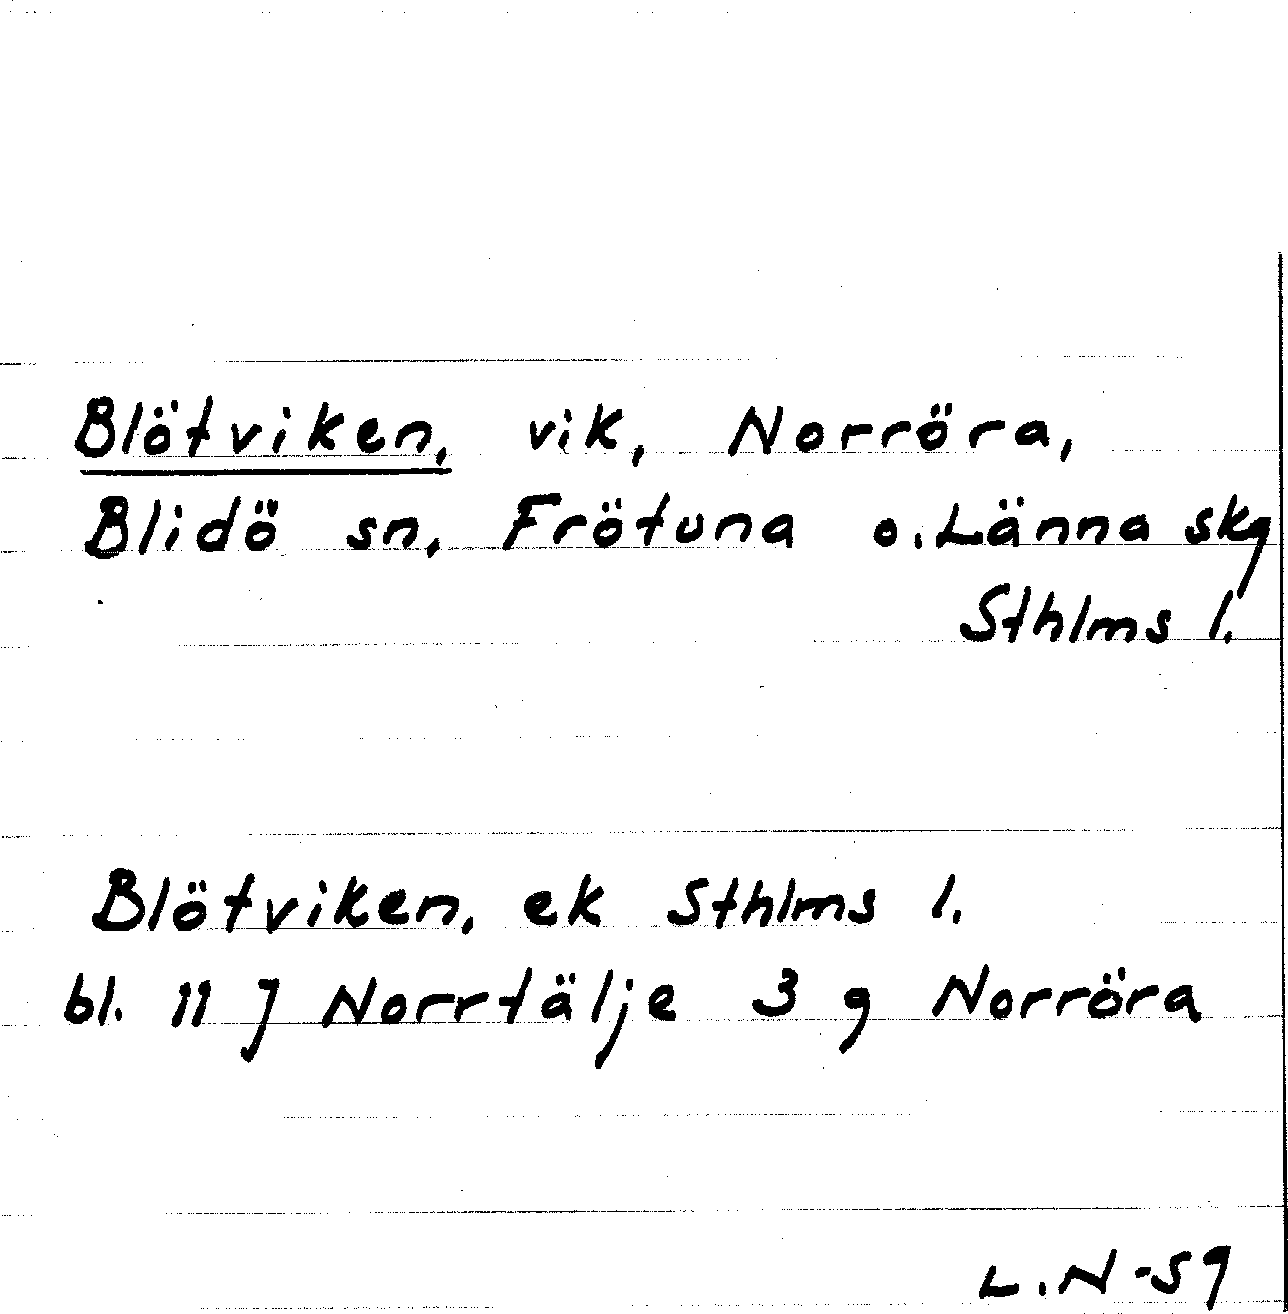 Blötviken, vik, Norröra,
Blidö sn, Frötuna o. Länna skg
Sthlms l.
Blötviken, ek Sthlms l.
bl. 11 J Norrtälje 3 g Norröra
L.N-59